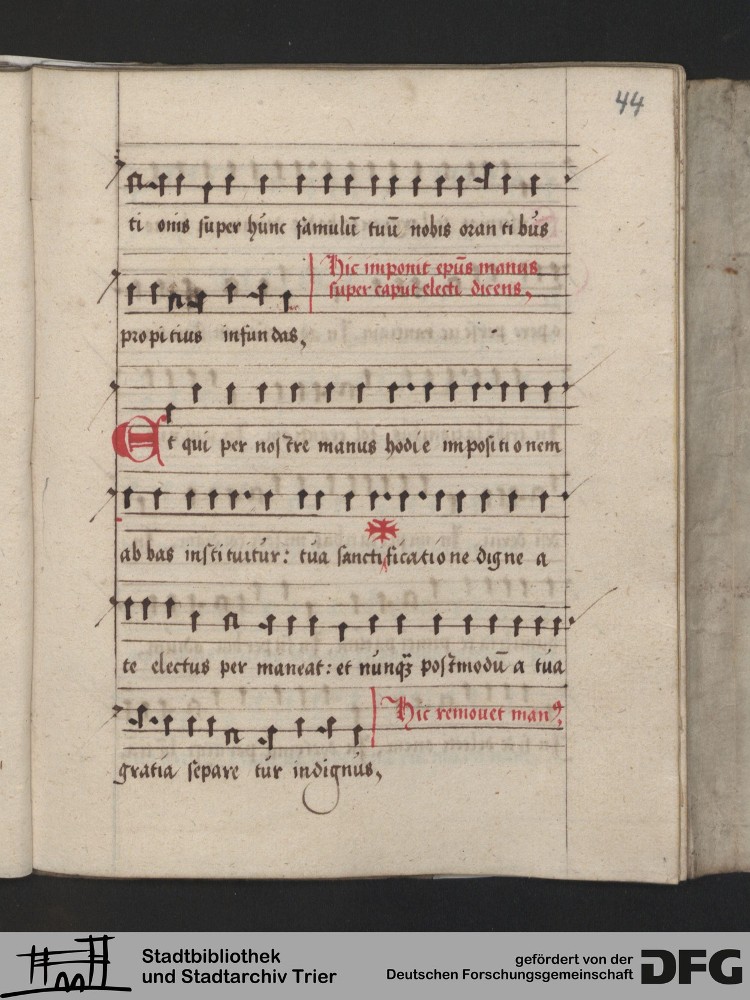 44
ti onis super hunc famulū tuū nobis oran ti bus
Hic imponit epūs manus
super caput electi dicens,
propi tius infun das,
Et qui per nostre manus hodi e im positi o nem
ab bas insti tuitur: tua sanctificatio ne digne a
te electus per maneat: et nunqȝ postmodū a tua
Hic remouet manꝰ,
gratia separe tur indignus,
Stadtbibliothek
und Stadtarchiv Trier
gefördert von der
Deutschen Forschungsgemeinschaft
DFG